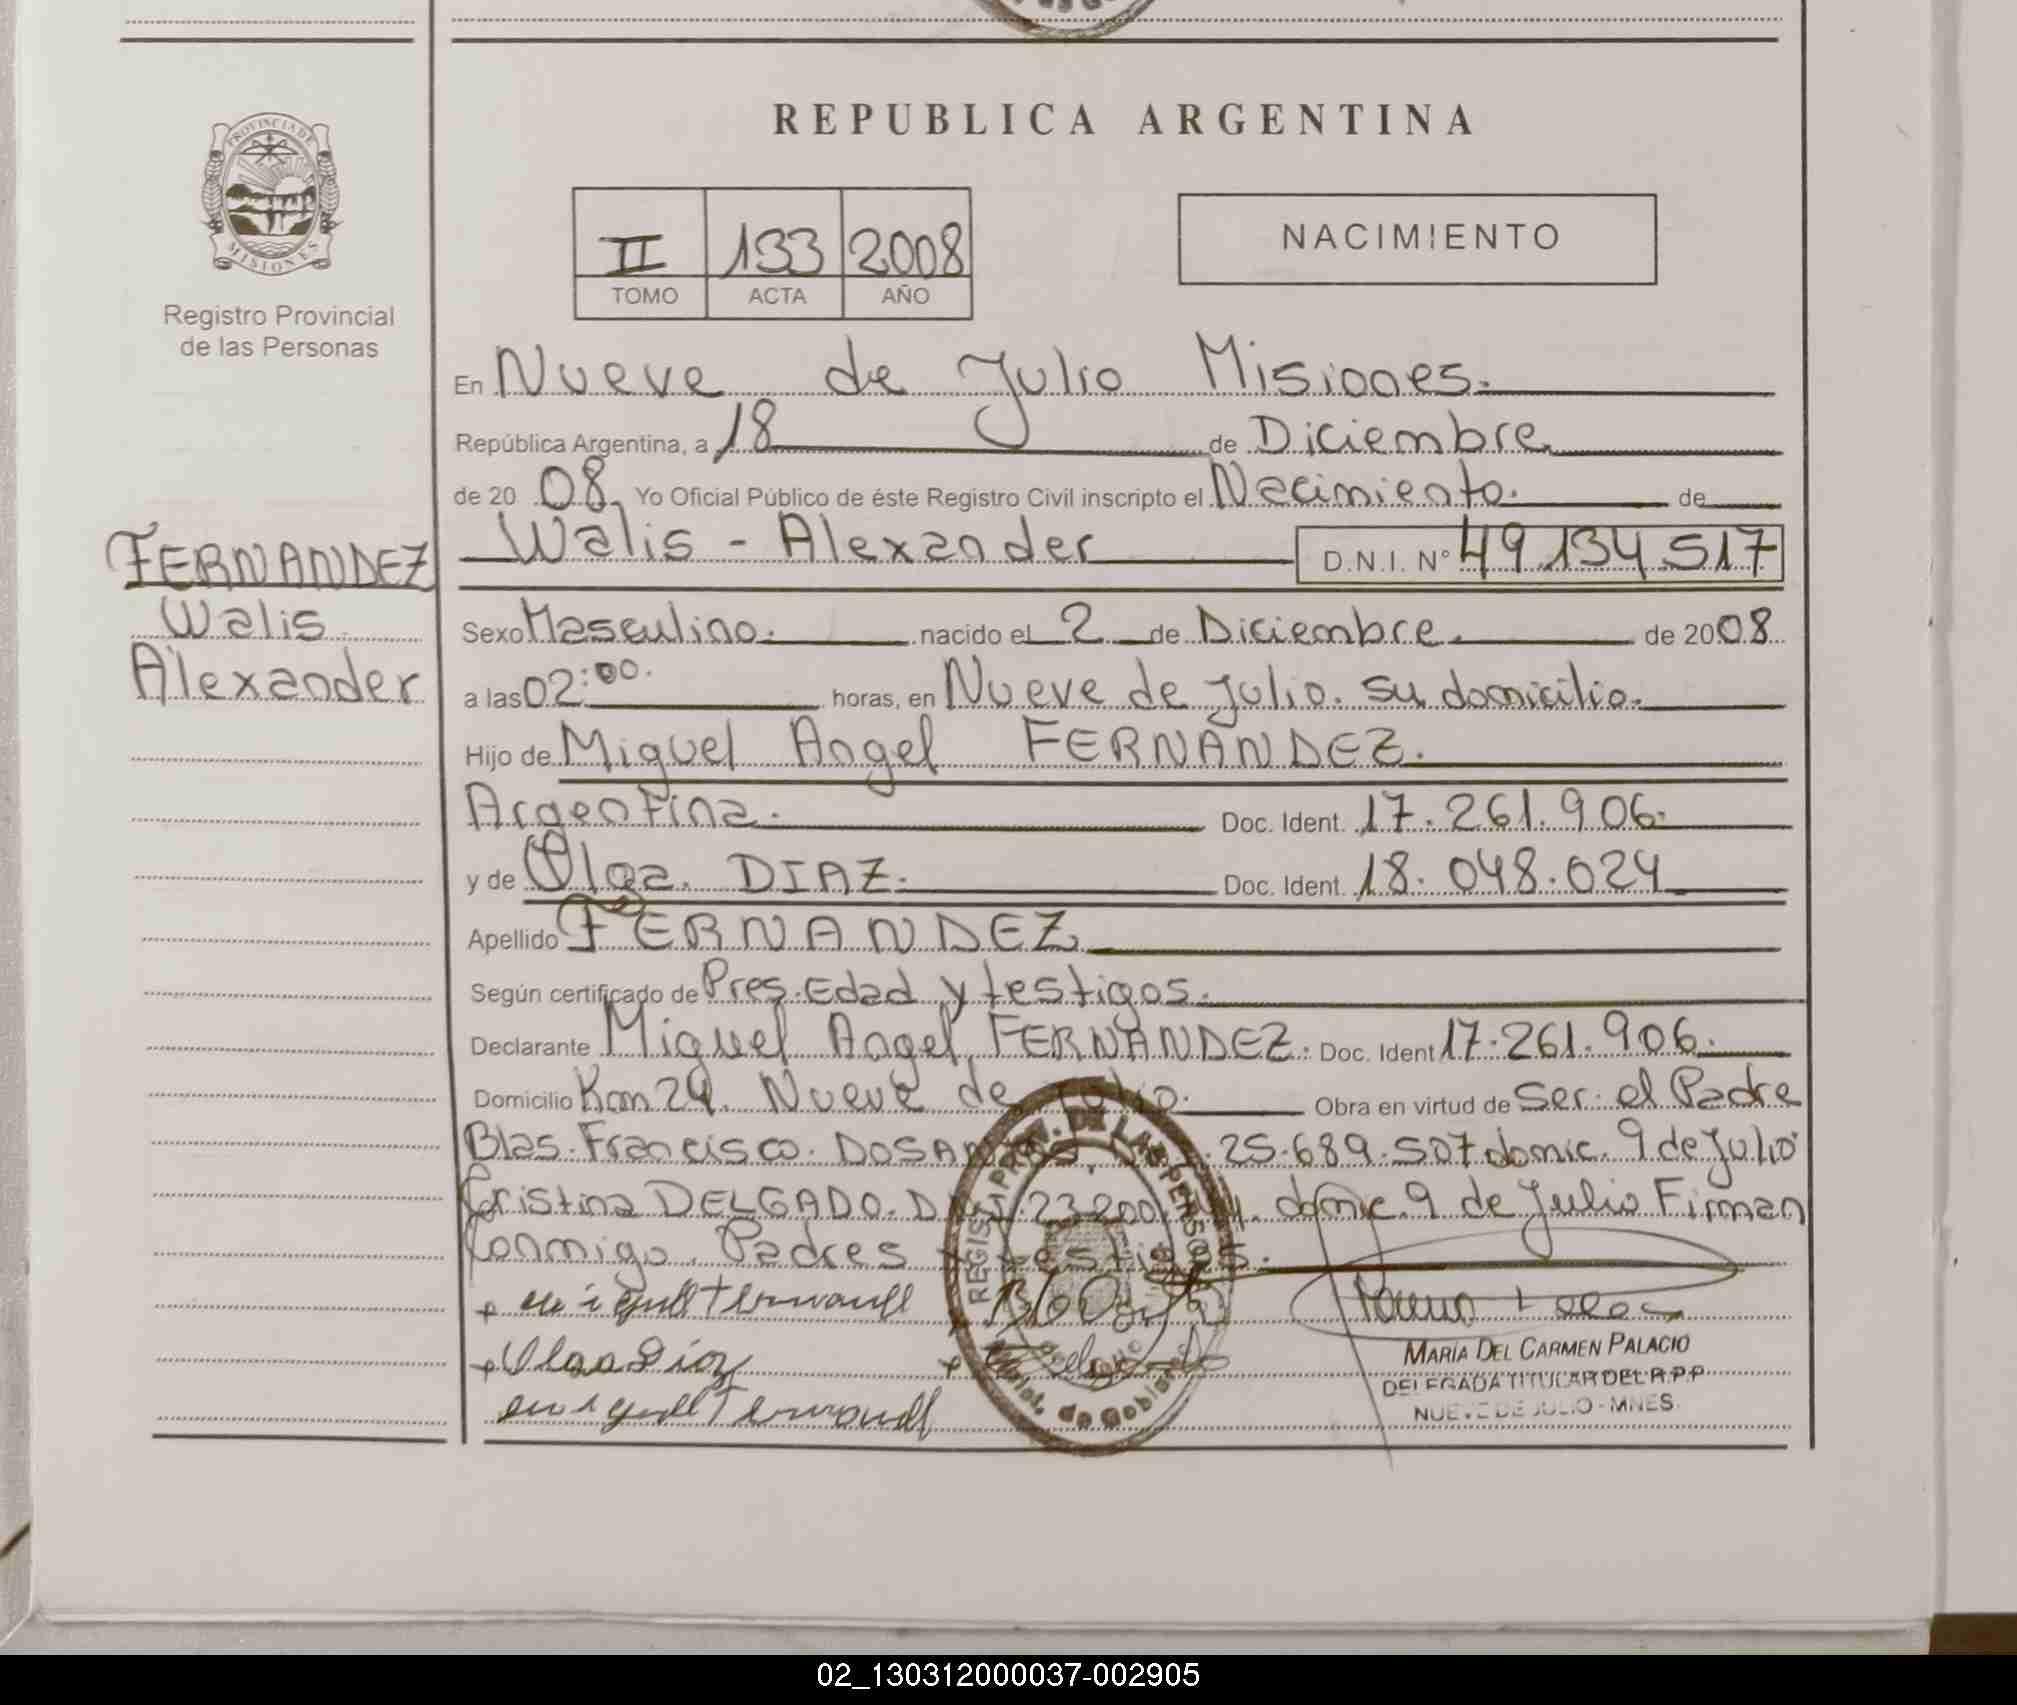 PROVINCIA DE
MISIONES
Registro Provincial
de las Personas
FERNANDEZ
Walis
Alexander
REPUBLICA ARGENTINA
II 133 2008
TOMO ACTA AÑO
NACIMIENTO
En Nueve de Julio Misiones.
República Argentina, a 18 de Diciembre
de 20 08 Yo Oficial Público de éste Registro Civil inscripto el Nacimiento. de
Walis - Alexander D.N.I. Nº 49.134.517
Sexo Masculino. nacido el 2 de Diciembre. de 2008
a las 02:00. horas, en Nueve de Julio. su domicilio.
Hijo de Miguel Angel FERNANDEZ.
Argentina. Doc. Ident. 17.261.906.
y de Olga. DIAZ. Doc. Ident. 18.048.024
Apellido FERNANDEZ
Según certificado de Pres. Edad y testigos.
Declarante Miguel Angel FERNANDEZ. Doc. Ident 17.261.906.
Domicilio Km 24. Nueve de Julio. Obra en virtud de Ser el Padre
Blas. Francisco. 25.689.507 domic. 9 de Julio
Cristina DELGADO. domic. 9 de Julio Firman
Conmigo. Padres y testigos.
Olga Diaz
MARÍA DEL CARMEN PALACIO
DELEGADA TITULAR DEL R.P.P
NUEVE DE JULIO - MNES.
02_130312000037-002905